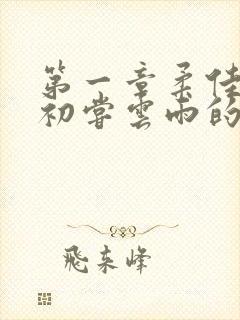 第一章柔佳
初尝云雨的
飛来峰